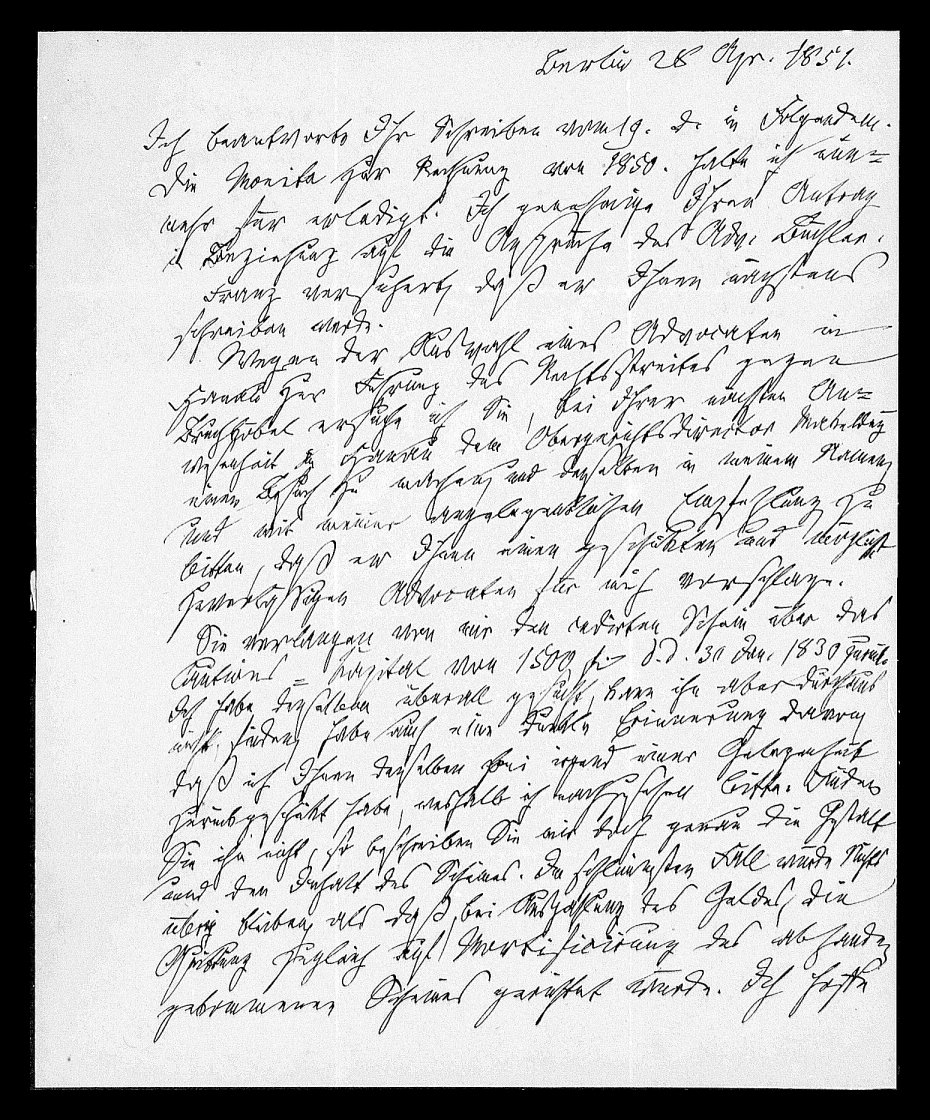 Berlin 28 Apr. 1851.
Ich beantworte Ihr Schreiben vom 19. d. in Folgendem.
Die Monita zur Rechnung von 1850. halte ich nun=
mehr für erledigt. Ich genehmige Ihren Antrag
in Beziehung auf die Ansprüche des Adv. Büchler.
Franz versichert, daß er Ihnen nächstens
schreiben werde.
Wegen der Auswahl eines Advocaten in
Hanau zur Führung des Rechtsstreites gegen
ersuche ich Sie, bei Ihrer nächsten An=
wesenheit in Hanau dem Obergerichtsdirector
einen Besuch zu machen, und denselben in meinem Namen,
und mit meiner angelegentlichen Empfehlung zu
bitten, daß er Ihnen einen geschickten und möglichst
zuverlässigen Advocaten für mich vorschlage.
Sie verlangen von mir den cedirten Schein über das
Cautions=Kapital von 1500 d.d. 30 Jan. 1830 zurück.
Ich habe denselben überall gesucht, kann ihn aber durchaus
nicht finden, habe auch eine dunkle Erinnerung davon,
daß ich Ihnen denselben bei irgend einer Gelegenheit
zurückgeschickt habe, weshalb ich nachzusehen bitte. Finden
Sie ihn nicht, so beschreiben Sie mir doch genau die Gestalt
und den Inhalt des Scheines. Im schlimmsten Fall würde Nichts
übrig bleiben, als daß, bei Auszahlung des Geldes, die
Quittung zugleich auf Mortificirung des abhanden
gekommenen Scheines gerichtet würde. Ich hoffe